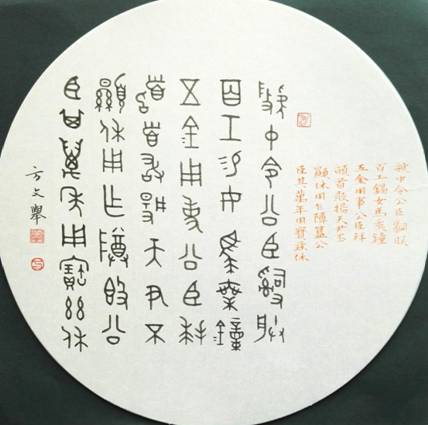 虢中令公臣嗣朕
百工錫女馬乘鐘
五金用事公臣拜
頴首敢揚天尹丕
顯休用乍尊簋公
臣其萬年用寶茲休
虢中令公臣嗣朕
百工易女馬乘鐘
五金用事公臣拜
稽首敢揚天尹不
顯休用乍尊簋公
臣其萬年用寶茲休
方文舉